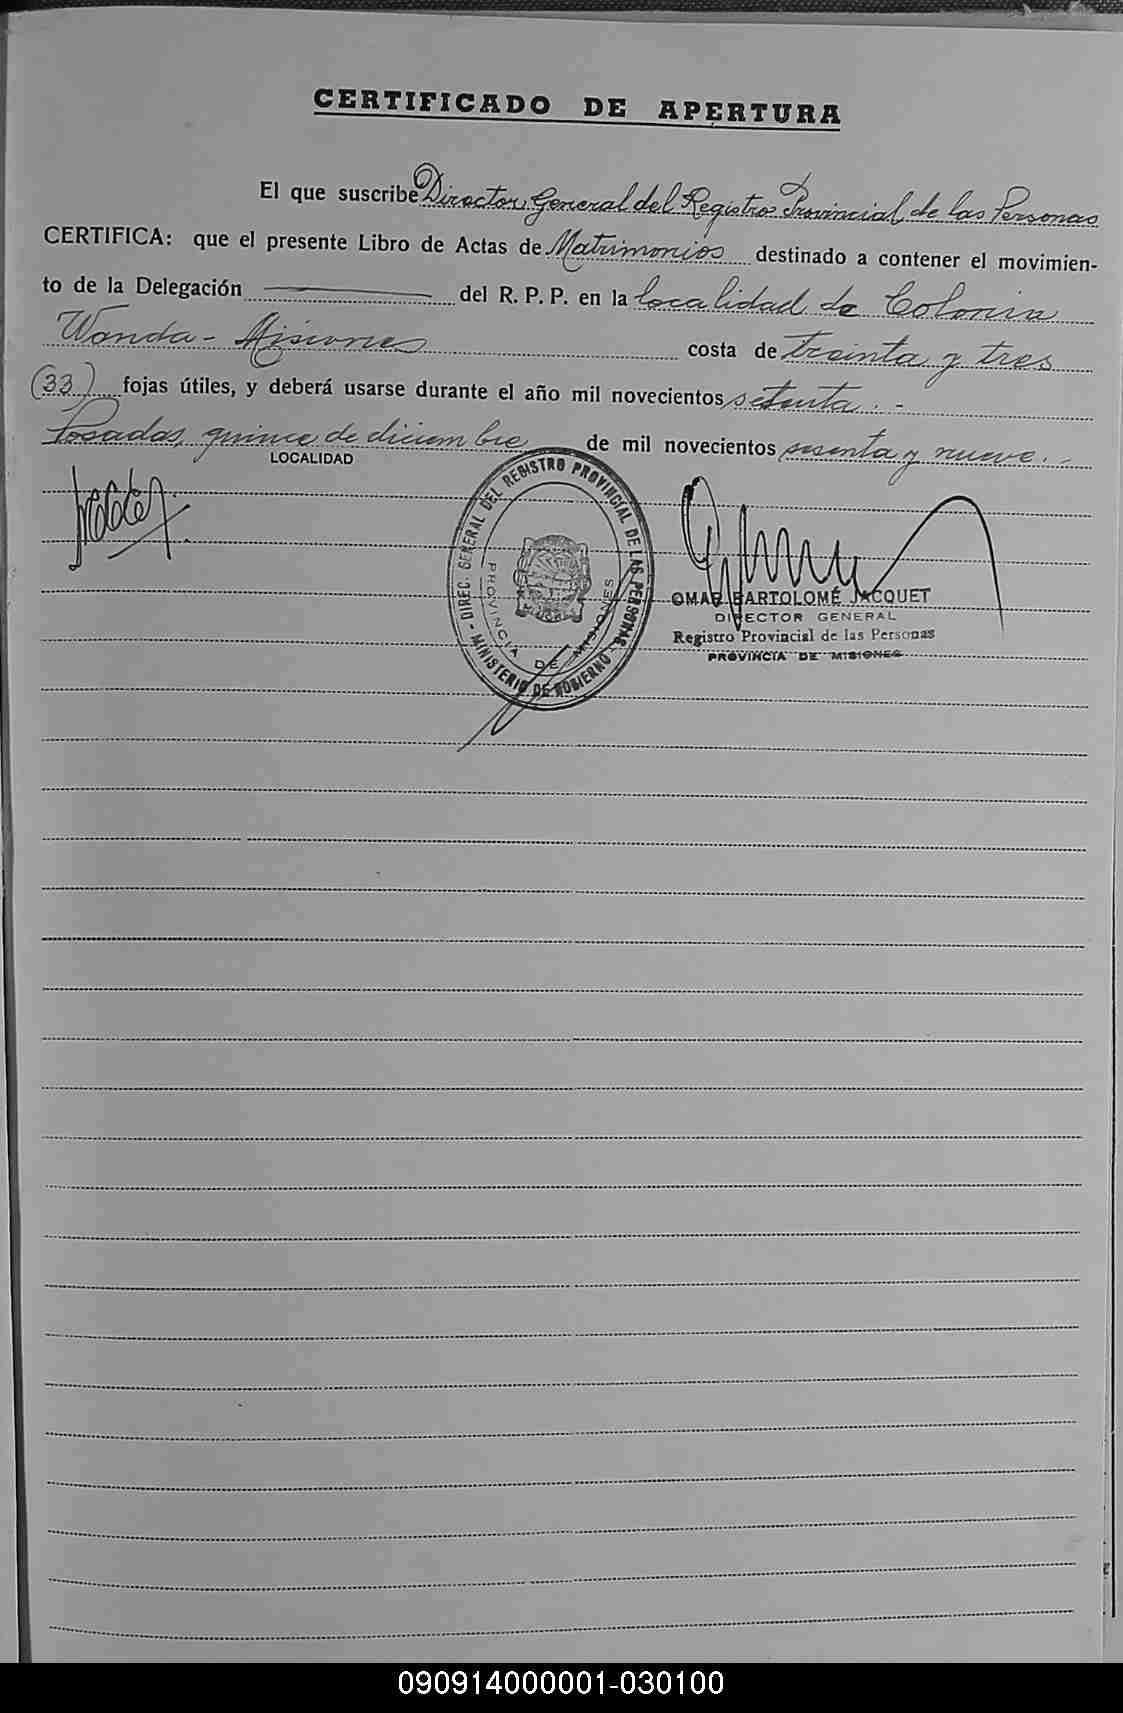 CERTIFICADO DE APERTURA
El que suscribe Director General del Registro Provincial de las Personas
CERTIFICA: que el presente Libro de Actas de Matrimonios destinado a contener el movimien-
to de la Delegación ——— del R. P. P. en la localidad de Colonia
Wanda - Misiones costa de treinta y tres
(33) fojas útiles, y deberá usarse durante el año mil novecientos setenta. -
Posadas, quince de diciembre de mil novecientos sesenta y nueve. -
LOCALIDAD
DIREC. GENERAL DEL REGISTRO PROVINCIAL DE LAS PERSONAS - MINISTERIO DE GOBIERNO
PROVINCIA DE MISIONES
OMAR BARTOLOMÉ JACQUET
DIRECTOR GENERAL
Registro Provincial de las Personas
PROVINCIA DE MISIONES
090914000001-030100